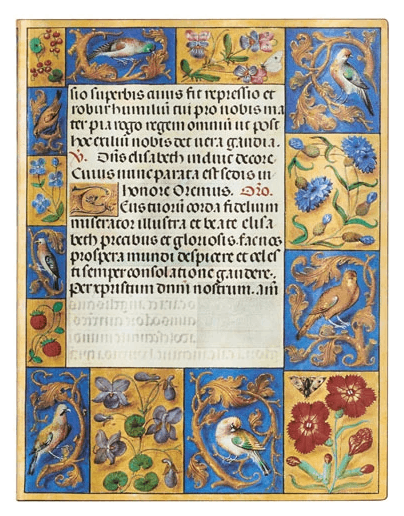 sio superbis cuius fit repressio et
robur humilium tui pro nobis ma
ter pia rogo regem omnium ut post
hoc exilium nobis det uera gaudia.
V. Dñs elisabeth induit decore
Cuius nunc parata est sedis in
honore Oremus. Oro.
Deus tuorum corda fidelium
miserator illustra et beate elisa
beth precibus et gloriosis fac nos
prospera mundi despicere et celes
ti semper consolatione gaudere.
per xpristum dnm nostrum. am